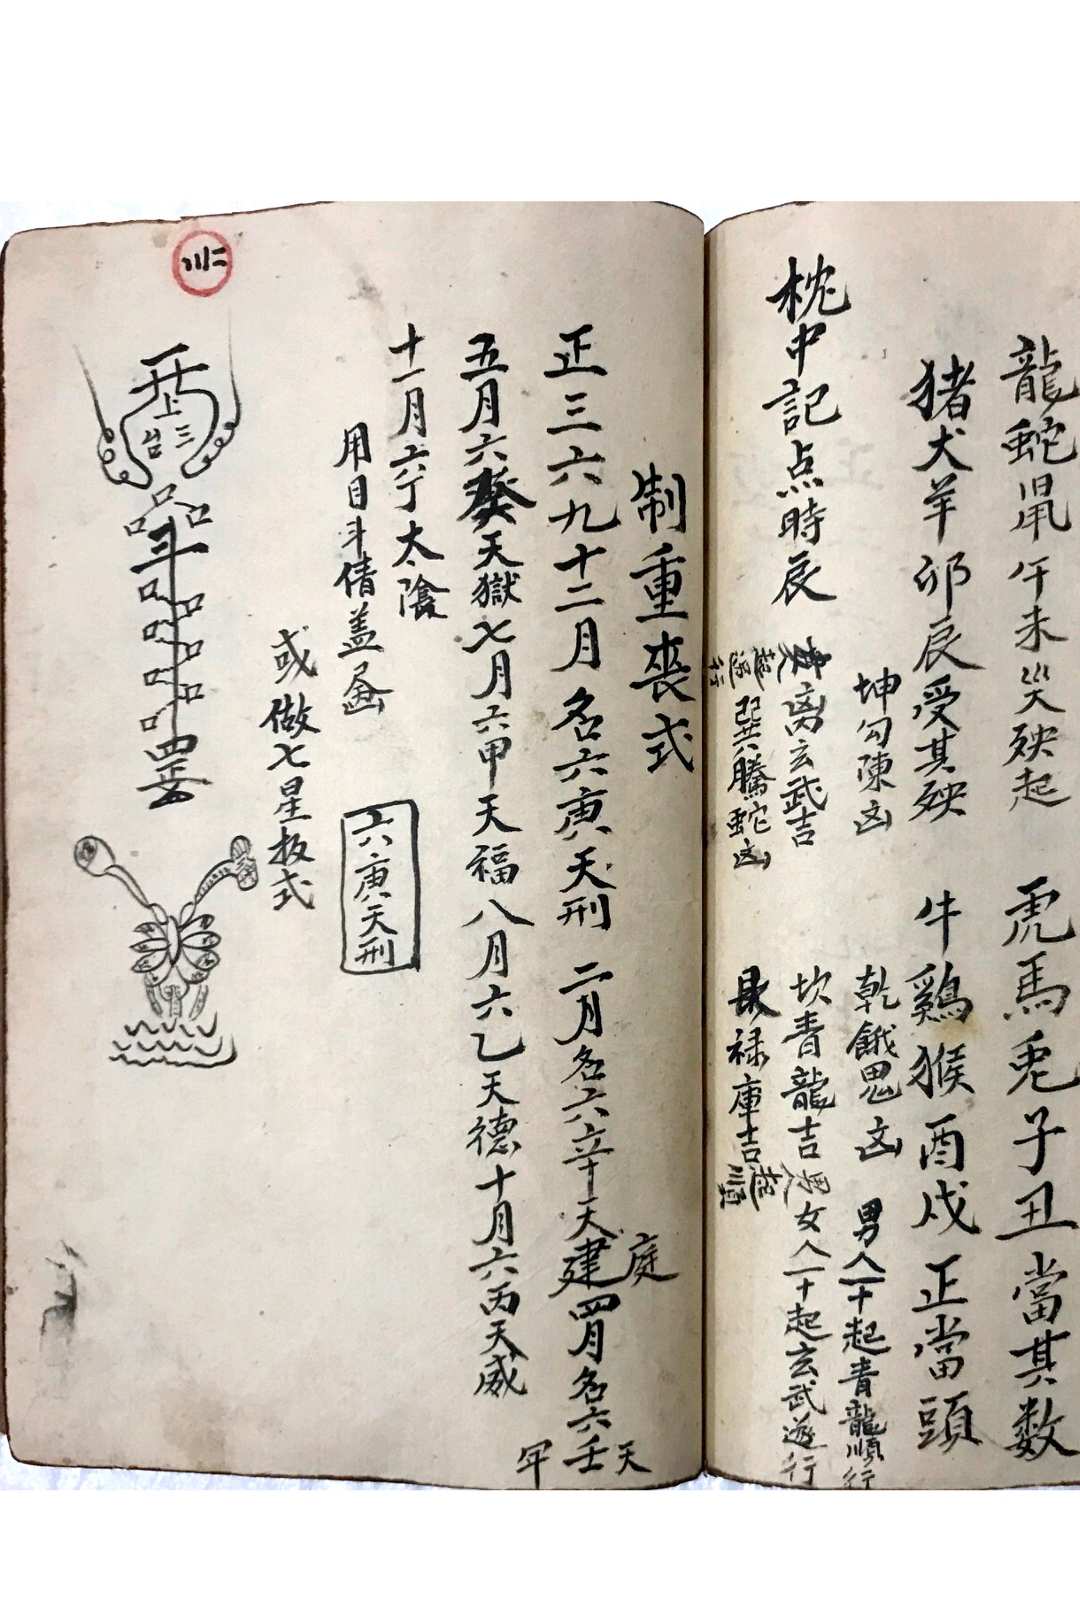 龍蛇鼠午未災殃起　虎馬兎子丑當其数
猪犬羊卯辰受其殃　牛鷄猴酉戍正當頭
坤勾陳凶　乾餓鬼凶　男人一十起青龍順行
枕中記点時辰　离玄武吉　坎青龍吉　女人一十起玄武逆行
巽騰蛇凶　艮禄庫吉
制重喪式
正三六九十二月名六庚天刑　二月名六辛天建四月名六壬天牢
庭
五月六癸天獄七月六甲天福八月六乙天德十月六丙天威
十一月六丁太陰
六庚天刑
或做七星板式
三台
罡